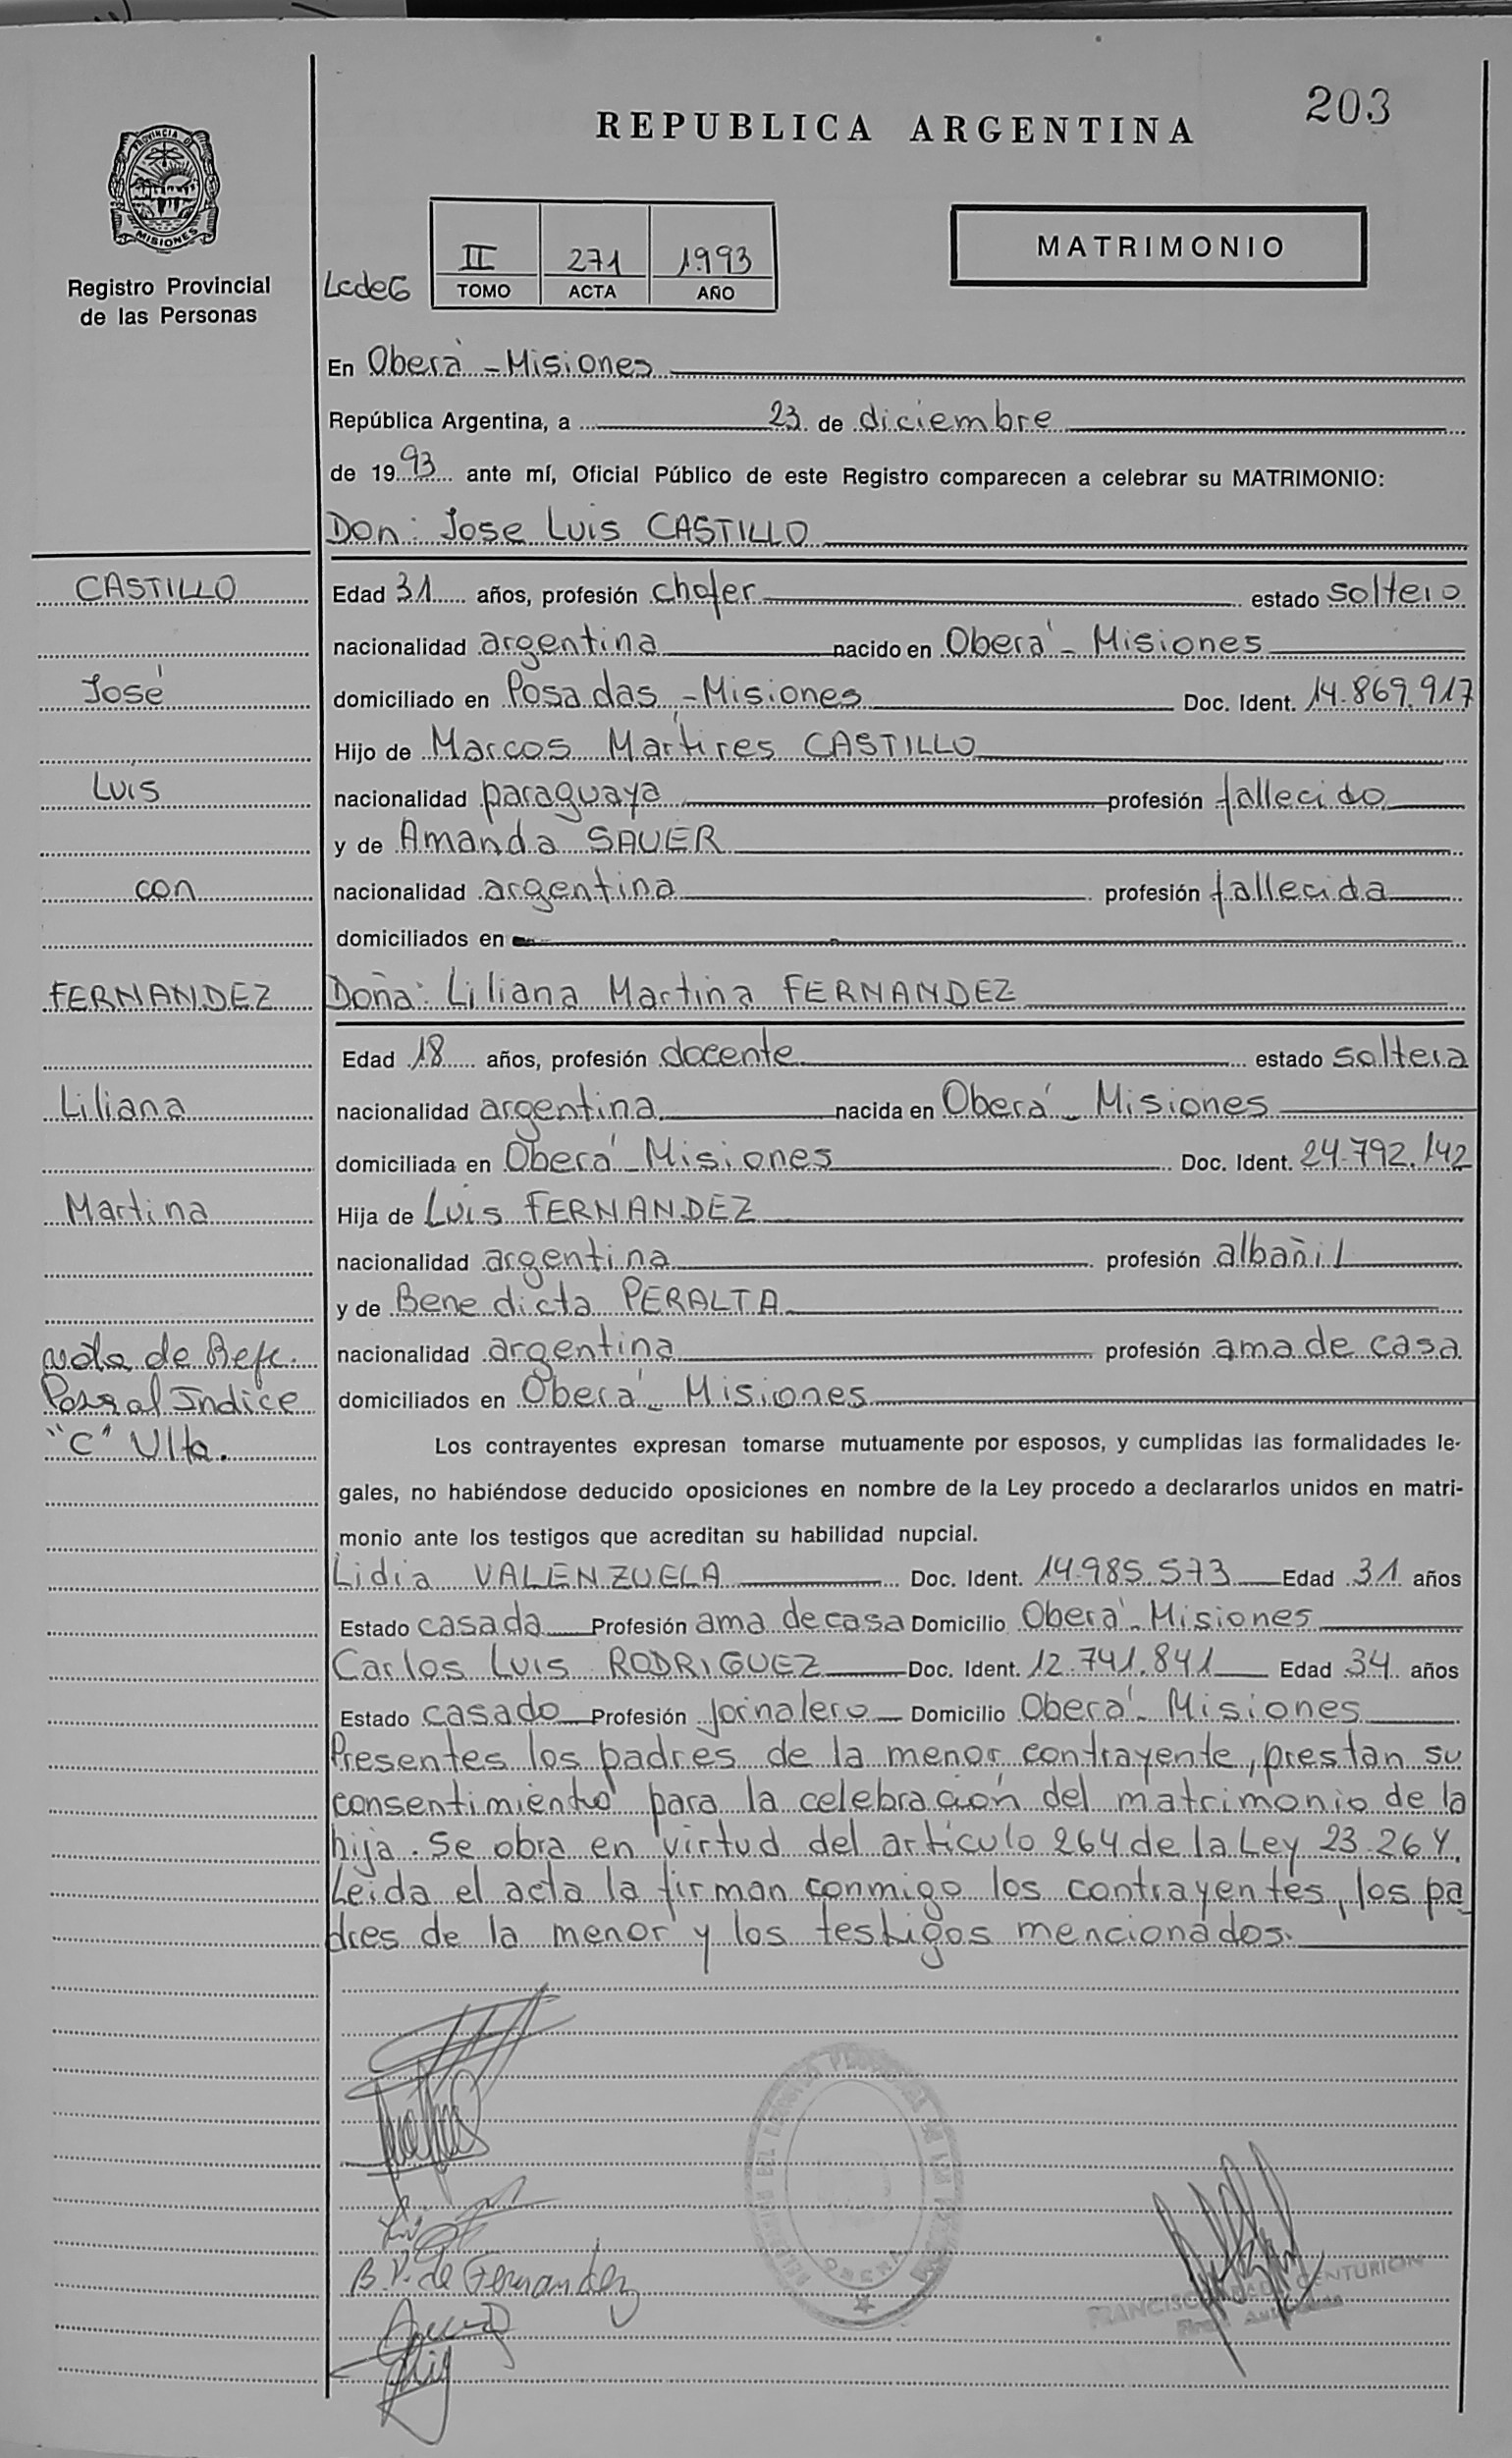 203
REPUBLICA ARGENTINA
PROVINCIA DE
MISIONES
Registro Provincial
de las Personas
II 271 1993
TOMO ACTA AÑO
MATRIMONIO
En Oberá - Misiones
República Argentina, a 23 de diciembre
de 1993 ante mí, Oficial Público de este Registro comparecen a celebrar su MATRIMONIO:
Don: Jose Luis CASTILLO
CASTILLO
José
Luis
con
FERNANDEZ
Liliana
Martina
Edad 31 años, profesión chofer estado soltero
nacionalidad argentina nacido en Oberá - Misiones
domiciliado en Posadas - Misiones Doc. Ident. 14.869.917
Hijo de Marcos Mártires CASTILLO
nacionalidad paraguaya profesión fallecido
y de Amanda SAUER
nacionalidad argentina profesión fallecida
domiciliados en
Doña: Liliana Martina FERNANDEZ
Edad 18 años, profesión docente estado soltera
nacionalidad argentina nacida en Oberá - Misiones
domiciliada en Oberá - Misiones Doc. Ident. 24.792.142
Hija de Luis FERNANDEZ
nacionalidad argentina profesión albañil
y de Benedicta PERALTA
nacionalidad argentina profesión ama de casa
domiciliados en Oberá - Misiones
de
al Indice
"C"
Los contrayentes expresan tomarse mutuamente por esposos, y cumplidas las formalidades le-
gales, no habiéndose deducido oposiciones en nombre de la Ley procedo a declararlos unidos en matri-
monio ante los testigos que acreditan su habilidad nupcial.
Lidia VALENZUELA Doc. Ident. 14.985.573 Edad 31 años
Estado casada Profesión ama de casa Domicilio Oberá - Misiones
Carlos Luis RODRIGUEZ Doc. Ident. 12.741.841 Edad 34 años
Estado casado Profesión jornalero Domicilio Oberá - Misiones
Presentes los padres de la menor contrayente, prestan su
consentimiento para la celebración del matrimonio de la
hija. Se obra en virtud del artículo 264 de la Ley 23.264.
Leída el acta la firman conmigo los contrayentes, los pa
dres de la menor y los testigos mencionados.
B. P. de Fernandez
OBERA
FRANCISCO CENTURION